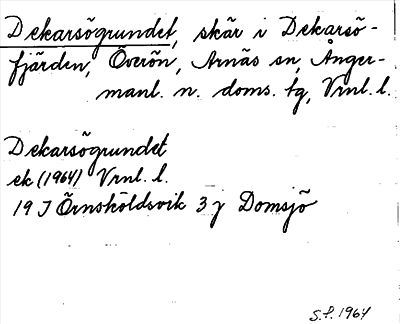 Dekarsögrundet, skär i Dekarsö-
fjärden, Överön, Arnäs sn, Ånger-
manl. n. doms. tg, Vrnl. l.
Dekarsögrundet
ek (1964) Vrnl. l.
19 J Örnsköldsvik 3 j Domsjö
S.f. 1964